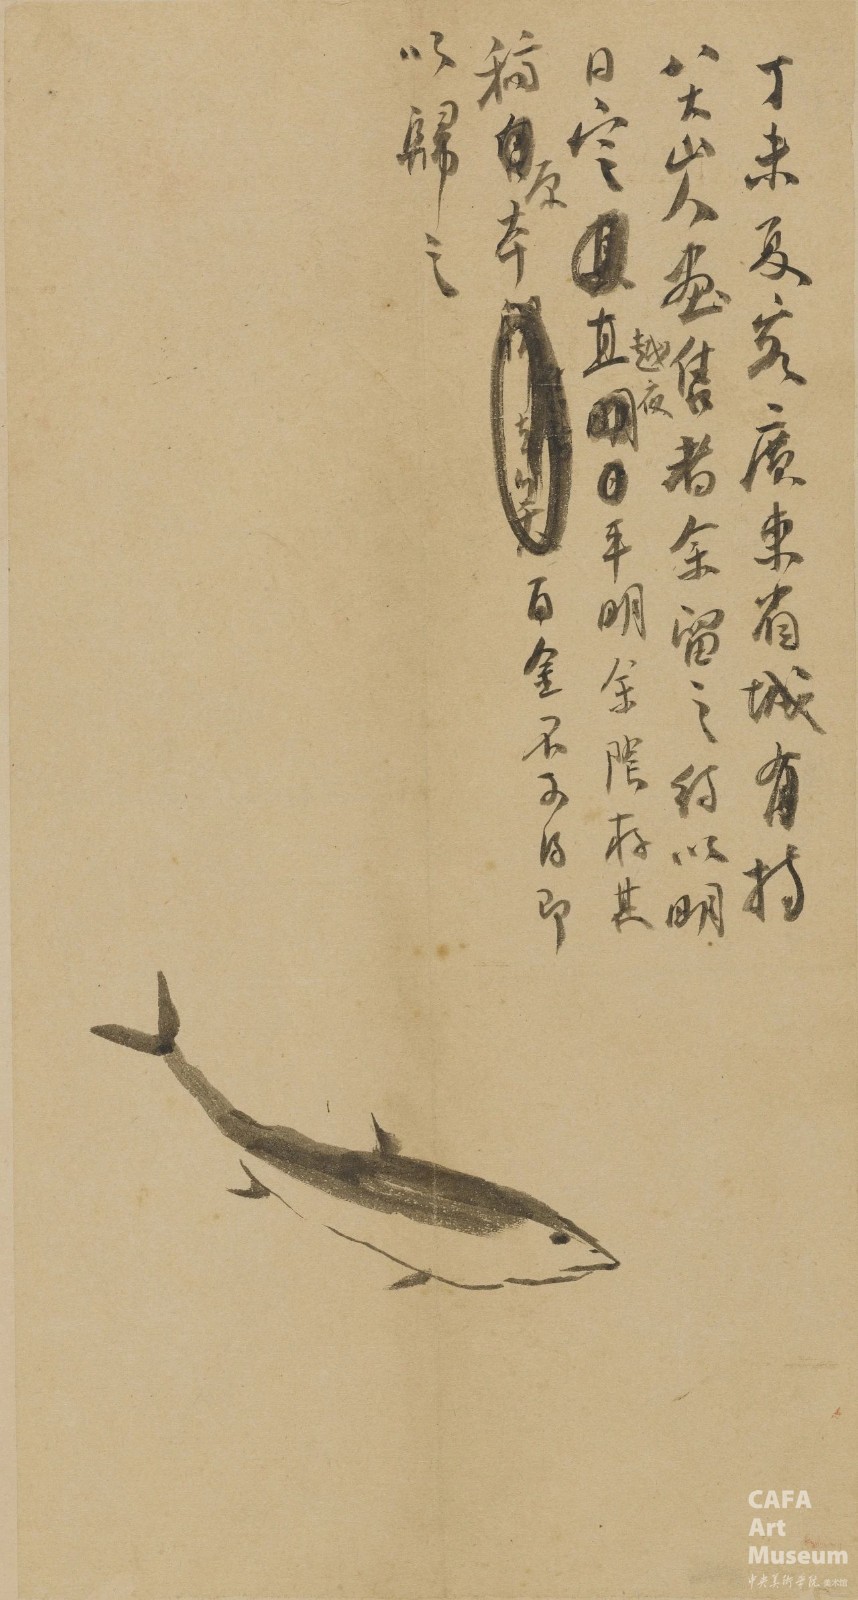 丁未夏客廣東省城有持
八大山人畫售者余留之待以明
日定直越夜平明余陰存其
稿原本百金不可得即
以歸之
CAFA
Art
Museum
中央美術學院 美术馆